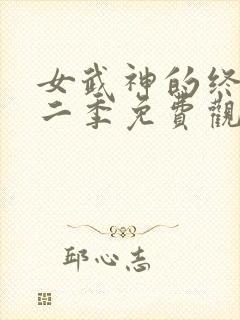 女武神的终
二季免費觀
邱心志